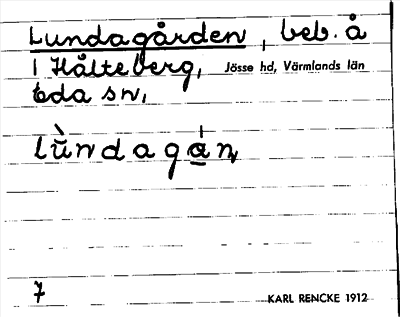 Lundagården, beb. å
1 Hålteberg, Jösse hd, Värmlands län
Eda sn,
lùndagạn
7 KARL RENCKE 1912